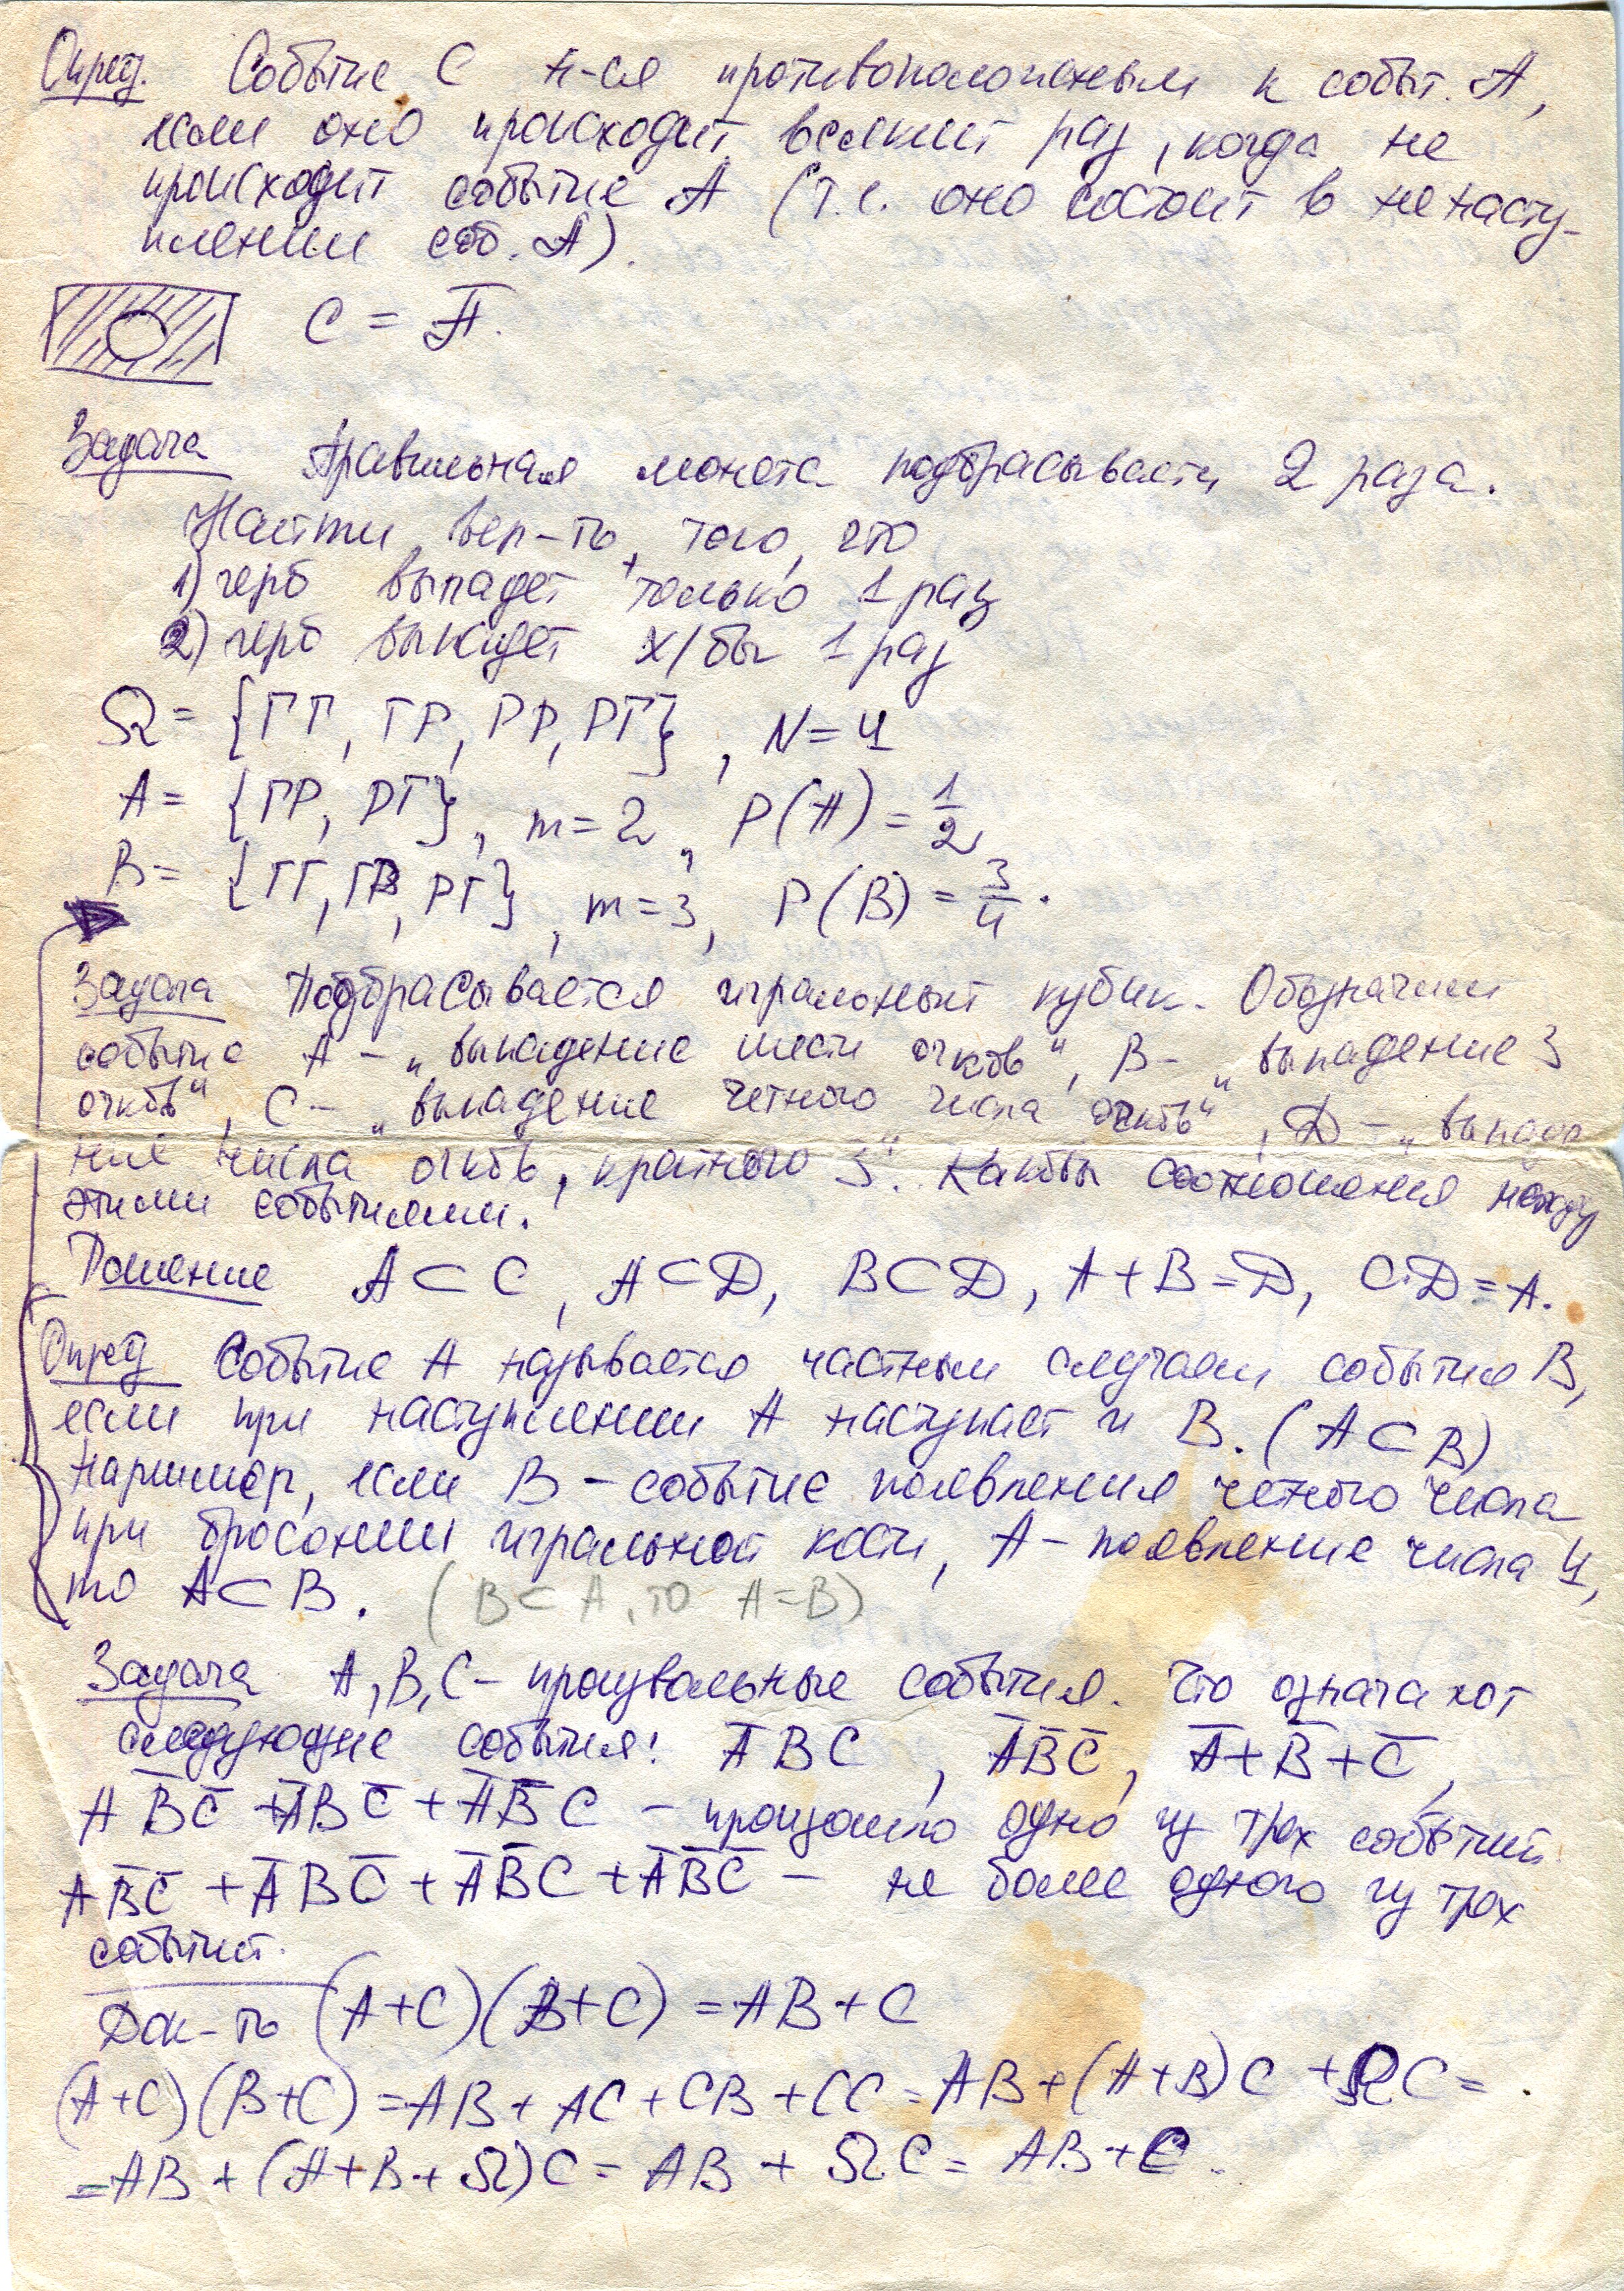 Опред. Событие C н-ся противоположным к событ. A,
если оно происходит всякий раз, когда не
происходит событие A (т.е. оно состоит в не насту-
плении соб. A).
C = A̅.
Задача Правильная монета подбрасывается 2 раза.
Найти вер-ть того, что
1) герб выпадет только 1 раз
2) герб выпадет х/бы 1 раз
Ω = {ГГ, ГР, РР, РГ}, N=4
A = {ГР, РГ}, m=2, P(A) = 1/2
B = {ГГ, ГР, РГ}, m=3, P(B) = 3/4.
Задача Подбрасывается игральный кубик. Обозначим
событие A – „выпадение шести очков“, B – „выпадение 3
очков“, C – „выпадение четного числа очков“, D – „выпаде
ние числа очков, кратного 3“. Каковы соотношения между
этими событиями.
Решение A⊂C, A⊂D, B⊂D, A+B=D, C·D=A.
Опред Событие A называется частным случаем события B,
если при наступлении A наступает и B. (A⊂B)
Например, если B – событие появления четного числа
при бросании игральной кости, A – появление числа 4,
то A⊂B. (B⊂A, то A=B)
Задача A, B, C – произвольные события. Что означают
следующие события: A̅BC, A̅B̅C̅, A̅+B̅+C̅,
AB̅C̅ + A̅BC̅ + A̅B̅C – произошло одно из трех событий.
AB̅C̅ + A̅BC̅ + A̅B̅C + A̅B̅C̅ – не более одного из трех
событий.
Док-ть (A+C)(B+C) = AB+C
(A+C)(B+C) = AB + AC + CB + CC = AB + (A+B)C + ΩC =
= AB + (A+B+Ω)C = AB + ΩC = AB + C.